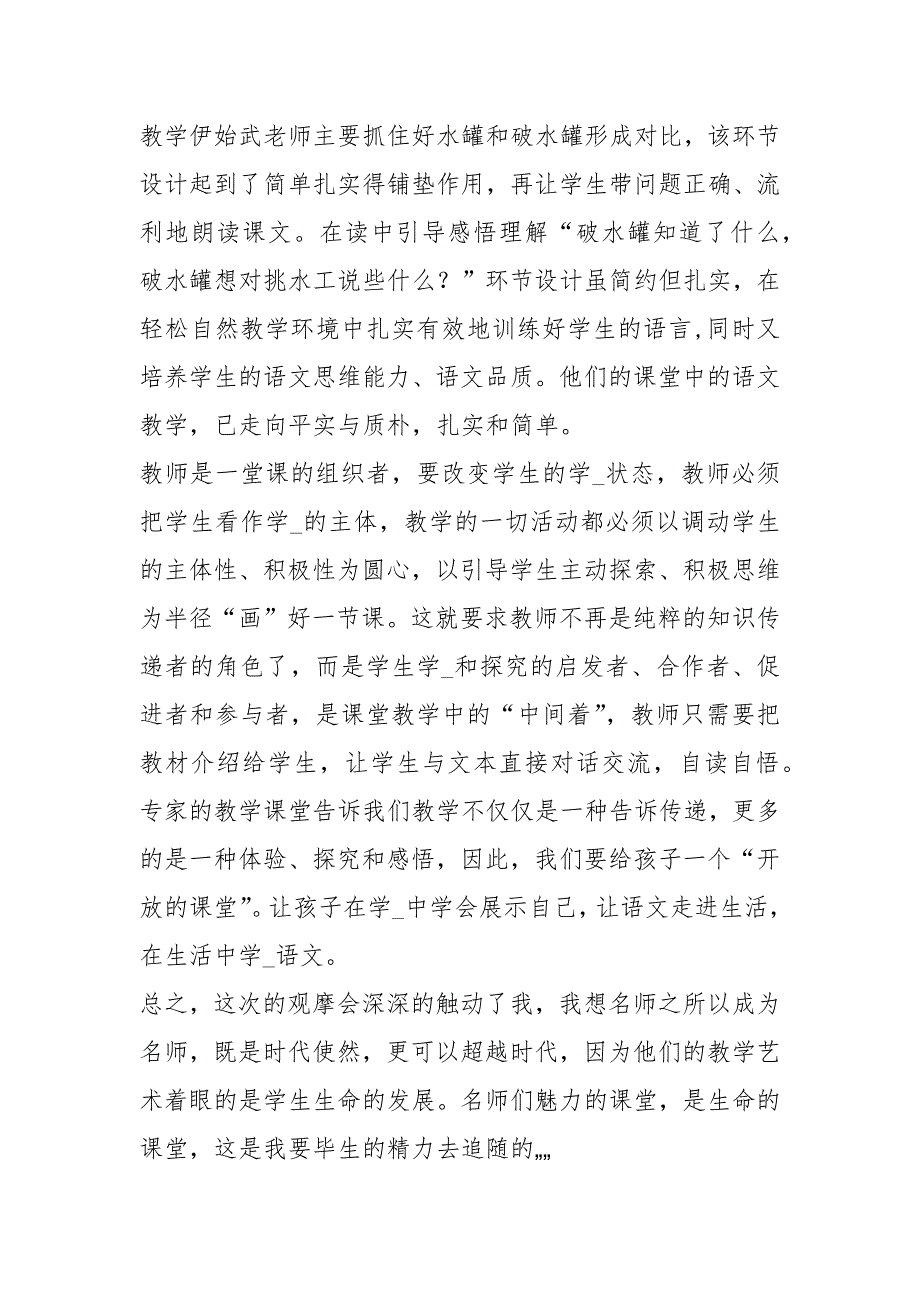 教学伊始武老师主要抓住好水罐和破水罐形成对比，该环节
设计起到了简单扎实得铺垫作用，再让学生带问题正确、流
利地朗读课文。在读中引导感悟理解“破水罐知道了什么，
破水罐想对挑水工说些什么？”环节设计虽简约但扎实，在
轻松自然教学环境中扎实有效地训练好学生的语言,同时又
培养学生的语文思维能力、语文品质。他们的课堂中的语文
教学，已走向平实与质朴，扎实和简单。
教师是一堂课的组织者，要改变学生的学_状态，教师必须
把学生看作学_的主体，教学的一切活动都必须以调动学生
的主体性、积极性为圆心，以引导学生主动探索、积极思维
为半径“画”好一节课。这就要求教师不再是纯粹的知识传
递者的角色了，而是学生学_和探究的启发者、合作者、促
进者和参与者，是课堂教学中的“中间着”，教师只需要把
教材介绍给学生，让学生与文本直接对话交流，自读自悟。
专家的教学课堂告诉我们教学不仅仅是一种告诉传递，更多
的是一种体验、探究和感悟，因此，我们要给孩子一个“开
放的课堂”。让孩子在学_中学会展示自己，让语文走进生活，
在生活中学_语文。
总之，这次的观摩会深深的触动了我，我想名师之所以成为
名师，既是时代使然，更可以超越时代，因为他们的教学艺
术着眼的是学生生命的发展。名师们魅力的课堂，是生命的
课堂，这是我要毕生的精力去追随的„„